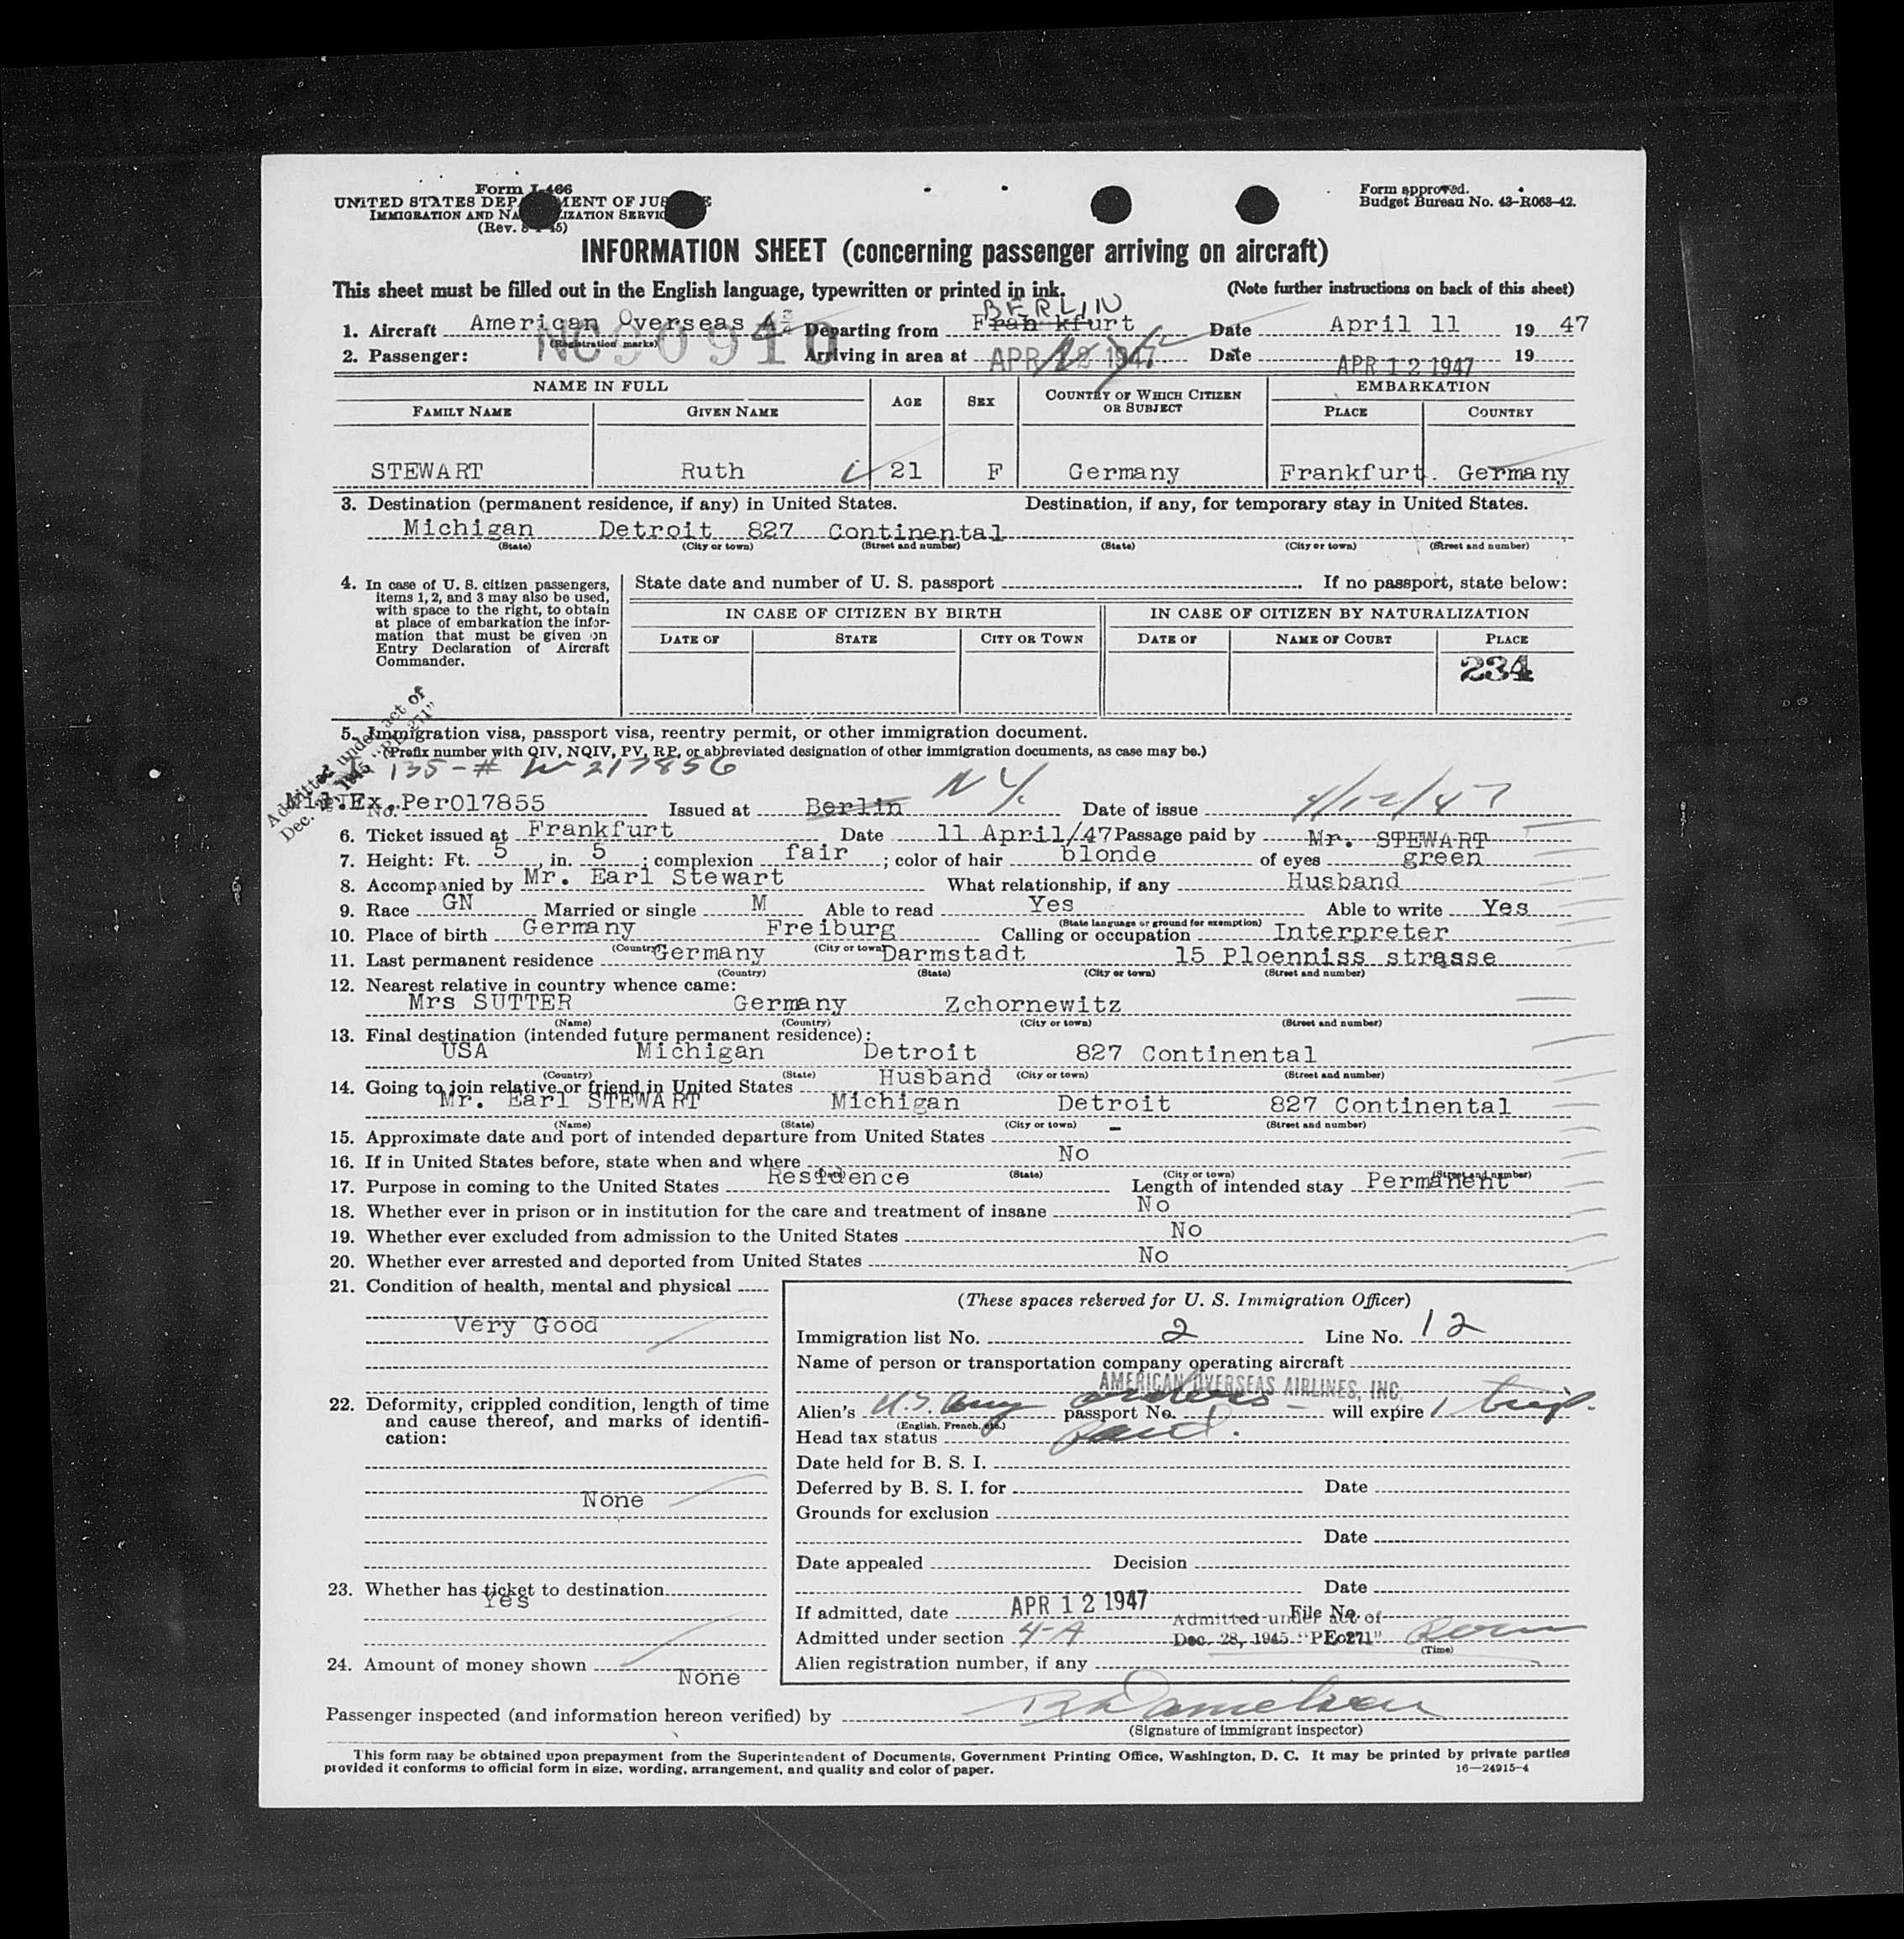 Form I-466
UNITED STATES DEPARTMENT OF JUSTICE
IMMIGRATION AND NATURALIZATION SERVICE
(Rev. 8-1-45)
Form approved.
Budget Bureau No. 43-R063-42.
INFORMATION SHEET (concerning passenger arriving on aircraft)
This sheet must be filled out in the English language, typewritten or printed in ink. (Note further instructions on back of this sheet)
BERLIN
1. Aircraft American Overseas A Departing from Frankfurt Date April 11 1947
(Registration marks)
NC90910
2. Passenger: Arriving in area at APR 12 1947 Date APR 12 1947 19
NAME IN FULL AGE SEX COUNTRY OF WHICH CITIZEN OR SUBJECT EMBARKATION
FAMILY NAME GIVEN NAME PLACE COUNTRY
STEWART Ruth 21 F Germany Frankfurt. Germany
3. Destination (permanent residence, if any) in United States. Destination, if any, for temporary stay in United States.
Michigan Detroit 827 Continental
(State) (City or town) (Street and number) (State) (City or town) (Street and number)
4. In case of U. S. citizen passengers,
items 1, 2, and 3 may also be used,
with space to the right, to obtain
at place of embarkation the infor-
mation that must be given on
Entry Declaration of Aircraft
Commander.
State date and number of U. S. passport If no passport, state below:
IN CASE OF CITIZEN BY BIRTH IN CASE OF CITIZEN BY NATURALIZATION
DATE OF STATE CITY OR TOWN DATE OF NAME OF COURT PLACE
234
Admitted under act of
Dec. 28, 1945 "PL-271"
5. Immigration visa, passport visa, reentry permit, or other immigration document.
(Prefix number with QIV, NQIV, PV, RP, or abbreviated designation of other immigration documents, as case may be.)
135-# 217856
Mil.Ex.Per017855 Issued at Berlin N.Y. Date of issue 4/12/47
No.
6. Ticket issued at Frankfurt Date 11 April/47 Passage paid by Mr. STEWART
7. Height: Ft. 5, in. 5; complexion fair; color of hair blonde of eyes green
8. Accompanied by Mr. Earl Stewart What relationship, if any Husband
9. Race GN Married or single M Able to read Yes Able to write Yes
(State language or ground for exemption)
10. Place of birth Germany Freiburg Calling or occupation Interpreter
(Country) (City or town)
11. Last permanent residence Germany Darmstadt 15 Ploenniss strasse
(Country) (State) (City or town) (Street and number)
12. Nearest relative in country whence came:
Mrs SUTTER Germany Zchornewitz
(Name) (Country) (City or town) (Street and number)
13. Final destination (intended future permanent residence):
USA Michigan Detroit 827 Continental
(Country) (State) (City or town) (Street and number)
14. Going to join relative or friend in United States Husband
Mr. Earl STEWART Michigan Detroit 827 Continental
(Name) (State) (City or town) (Street and number)
15. Approximate date and port of intended departure from United States -
16. If in United States before, state when and where No
(Date) (State) (City or town) (Street and number)
17. Purpose in coming to the United States Residence Length of intended stay Permanent
18. Whether ever in prison or in institution for the care and treatment of insane No
19. Whether ever excluded from admission to the United States No
20. Whether ever arrested and deported from United States No
21. Condition of health, mental and physical
Very Good
22. Deformity, crippled condition, length of time
and cause thereof, and marks of identifi-
cation:
None
23. Whether has ticket to destination
Yes
24. Amount of money shown None
(These spaces reserved for U. S. Immigration Officer)
Immigration list No. 2 Line No. 12
Name of person or transportation company operating aircraft
AMERICAN OVERSEAS AIRLINES, INC.
Alien's U.S. Army orders passport No. will expire 1 trip.
(English, French, etc.)
Head tax status Paid.
Date held for B. S. I.
Deferred by B. S. I. for Date
Grounds for exclusion
Date
Date appealed Decision
Date
If admitted, date APR 12 1947 File No.
Admitted under act of
Admitted under section 4-A For
Dec. 28, 1945 "PL-271"
(Time)
Alien registration number, if any
Passenger inspected (and information hereon verified) by
(Signature of immigrant inspector)
This form may be obtained upon prepayment from the Superintendent of Documents, Government Printing Office, Washington, D. C. It may be printed by private parties
provided it conforms to official form in size, wording, arrangement, and quality and color of paper. 16—24915-4